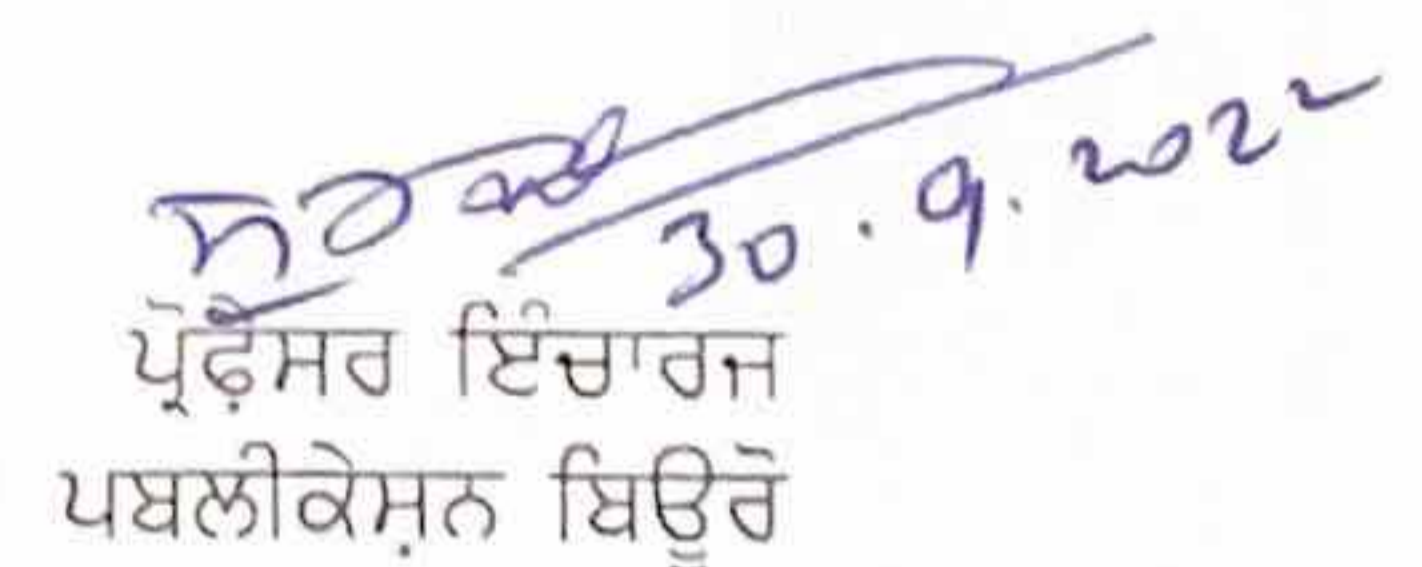 30.9.2022
ਪ੍ਰੋਫ਼ੈਸਰ ਇੰਚਾਰਜ
ਪਬਲੀਕੇਸ਼ਨ ਬਿਊਰੋ